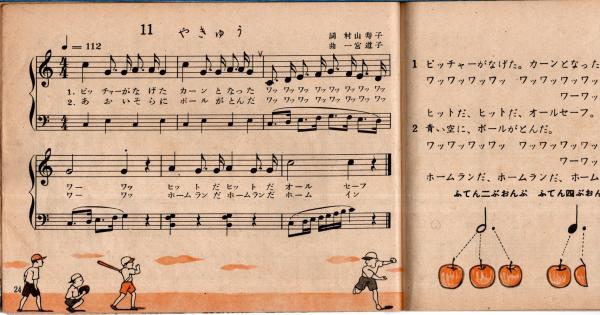 11 やきゅう
詞 村山寿子
曲 一宮道子
♩= 112
1. ピッ チャーがな げた カーン と なった ワッ ワッ ワッ ワッ ワッ ワッ ワッ ワッ
2. あ お いそらに ボール がとんだ ワッ ワッ ワッ ワッ ワッ ワッ ワッ ワッ
ワー ワッ ヒットだヒットだ オール セーフ
ワー ワッ ホームランだ ホームランだ ホーム イン
24
1 ピッチャーがなげた。カーンとなった
ワッワッワッワッ ワッワッワッ
ワーワッ
ヒットだ、ヒットだ、オールセーフ。
2 青い空に、ボールがとんだ。
ワッワッワッワッ ワッワッワッ
ワーワッ
ホームランだ、ホームランだ、ホーム
ふてん二ぶおんぷ ふてん四ぶおん